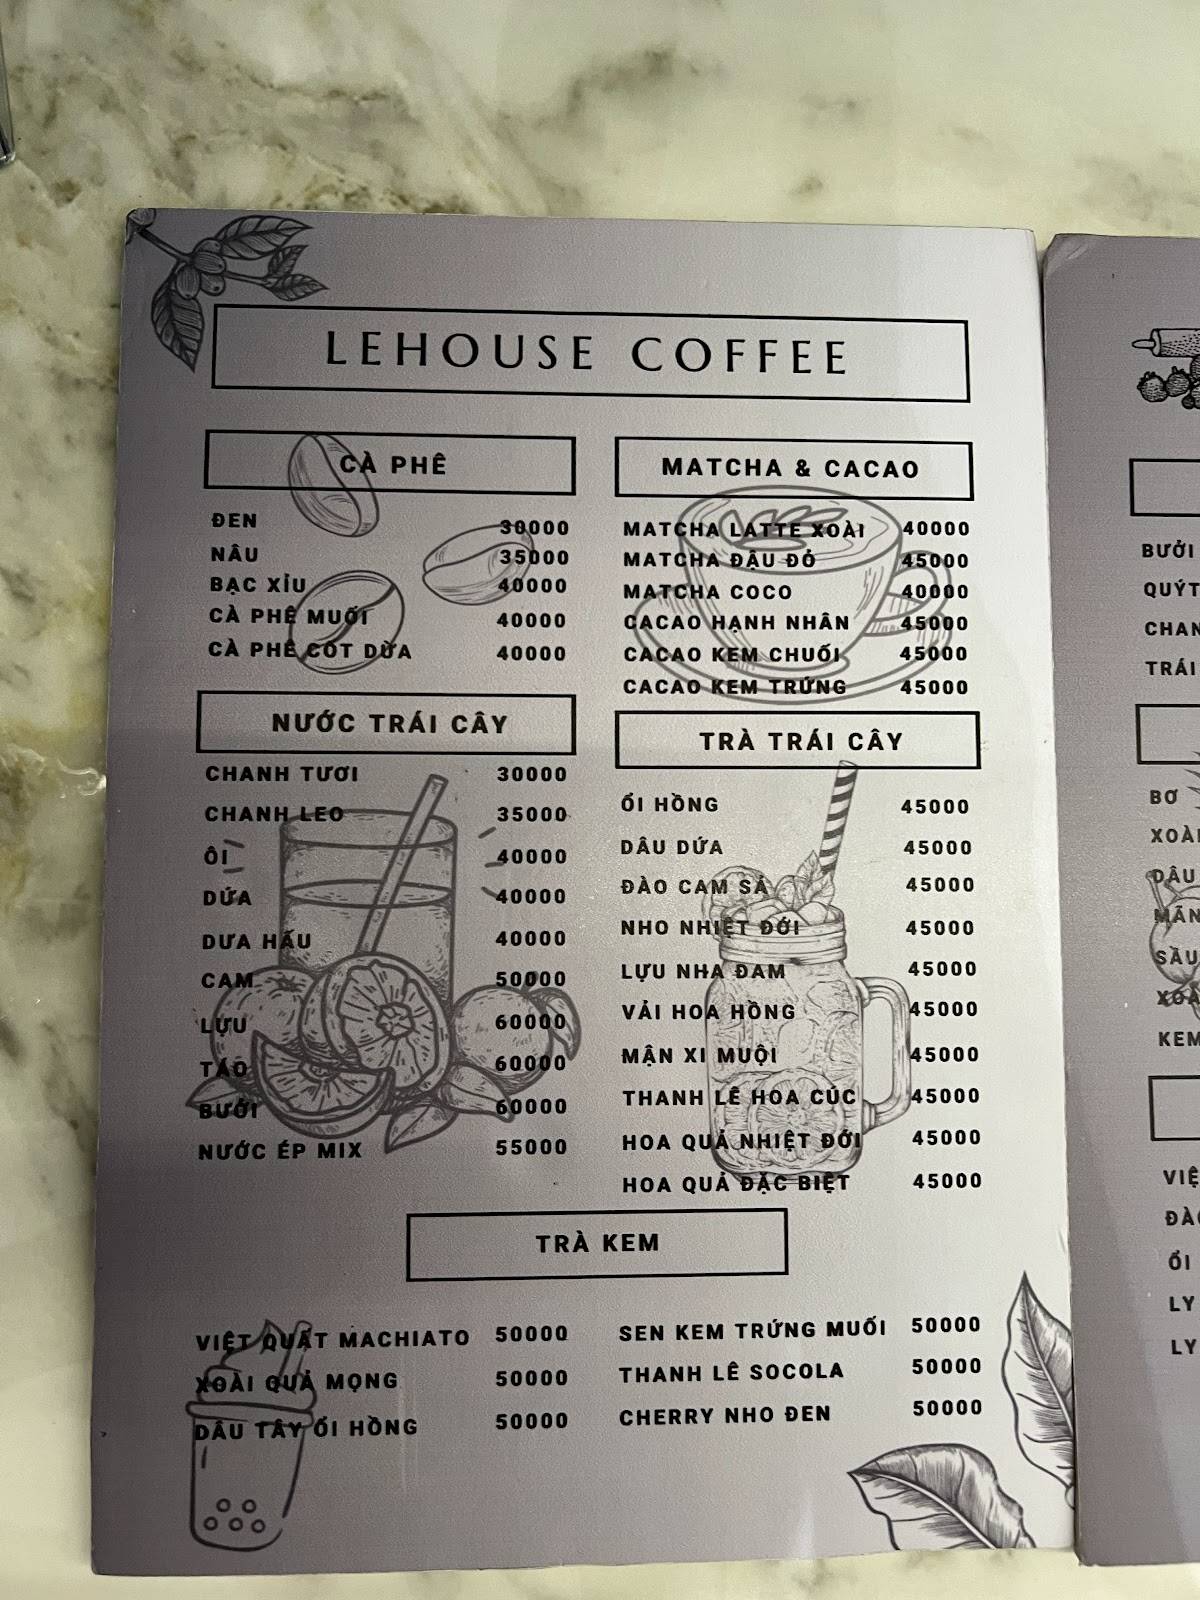 LEHOUSE COFFEE
CÀ PHÊ
ĐEN 30000
NÂU 35000
BẠC XỈU 40000
CÀ PHÊ MUỐI 40000
CÀ PHÊ CỐT DỪA 40000
MATCHA & CACAO
MATCHA LATTE XOÀI 40000
MATCHA ĐẬU ĐỎ 45000
MATCHA COCO 40000
CACAO HẠNH NHÂN 45000
CACAO KEM CHUỐI 45000
CACAO KEM TRỨNG 45000
NƯỚC TRÁI CÂY
CHANH TƯƠI 30000
CHANH LEO 35000
ÔI 40000
DỨA 40000
DƯA HẤU 40000
CAM 50000
LỰU 60000
TÁO 60000
BƯỞI 60000
NƯỚC ÉP MIX 55000
TRÀ TRÁI CÂY
ỔI HỒNG 45000
DÂU DỨA 45000
ĐÀO CAM SẢ 45000
NHO NHIỆT ĐỚI 45000
LỰU NHA ĐAM 45000
VẢI HOA HỒNG 45000
MẬN XI MUỘI 45000
THANH LÊ HOA CÚC 45000
HOA QUẢ NHIỆT ĐỚI 45000
HOA QUẢ ĐẶC BIỆT 45000
TRÀ KEM
VIỆT QUẤT MACHIATO 50000
XOÀI QUẢ MỌNG 50000
DÂU TÂY ỔI HỒNG 50000
SEN KEM TRỨNG MUỐI 50000
THANH LÊ SOCOLA 50000
CHERRY NHO ĐEN 50000
BƯỞI
QUÝT
CHAN
TRÁI
BƠ
XOÀI
DÂU
MÃN
SẦU
XOÀ
KEM
VIỆ
ĐÀO
ỔI
LY
LY